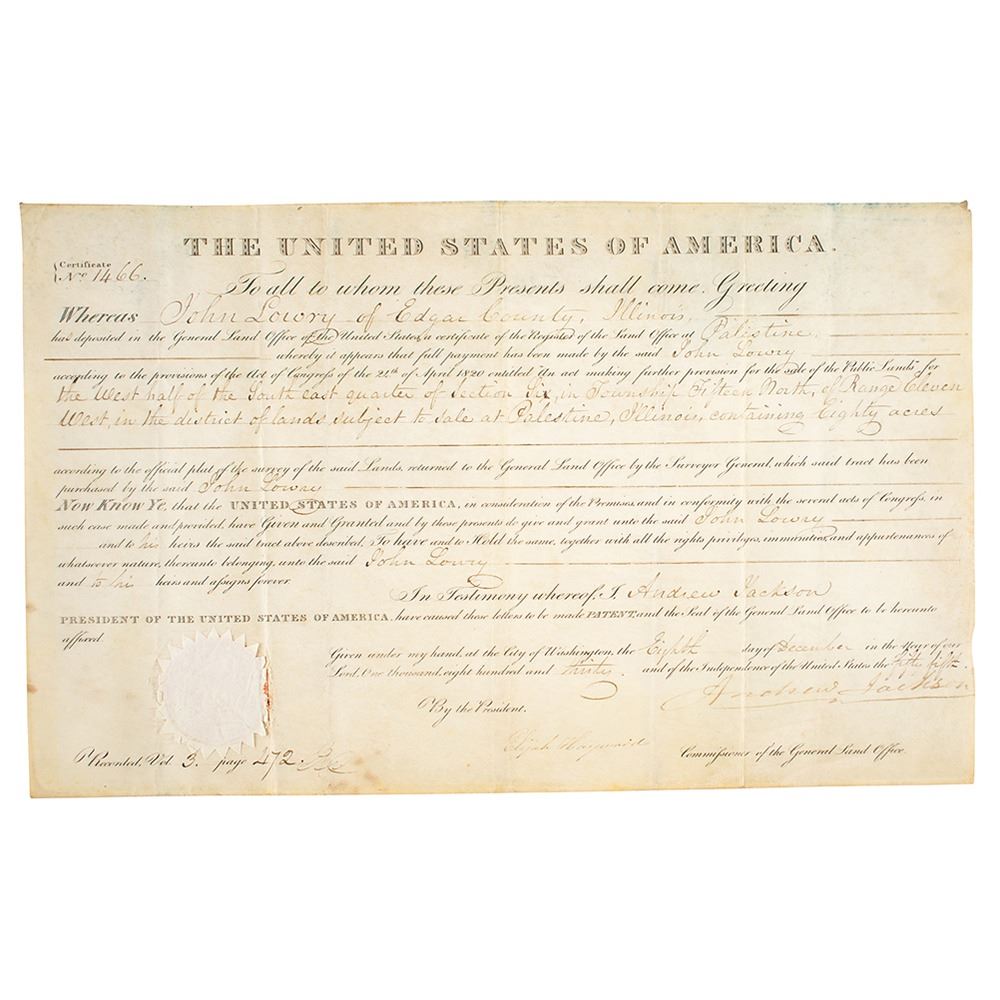 THE UNITED STATES OF AMERICA.
Certificate
No 1466.
To all to whom these Presents shall come, Greeting
Whereas John Lowry of Edgar County, Illinois,
has deposited in the General Land Office of the United States, a certificate of the Register of the Land Office at Palestine,
whereby it appears that full payment has been made by the said John Lowry
according to the provisions of the Act of Congress of the 24th of April 1820 entitled An act making further provision for the sale of the Public Lands for
the West half of the South east quarter of Section Six, in Township Fifteen North, of Range Eleven
West, in the district of lands subject to sale at Palestine, Illinois, containing Eighty acres
according to the official plat of the survey of the said Lands, returned to the General Land Office by the Surveyor General, which said tract has been
purchased by the said John Lowry
Now Know Ye, that the UNITED STATES OF AMERICA, in consideration of the Premises, and in conformity with the several acts of Congress, in
such case made and provided, have Given and Granted and by these presents do give and grant unto the said John Lowry
and to his heirs the said tract above described, To have and to Hold the same, together with all the rights, privileges, immunities, and appurtenances of
whatsoever nature, thereunto belonging, unto the said John Lowry
and to his heirs and assigns forever.
In Testimony whereof, I, Andrew Jackson
PRESIDENT OF THE UNITED STATES OF AMERICA, have caused these letters to be made PATENT, and the Seal of the General Land Office to be hereunto
affixed.
Given under my hand, at the City of Washington, the Eighth day of December in the Year of our
Lord, One thousand, eight hundred and thirty and of the Independence of the United States the fifty fifth.
Andrew Jackson
By the President.
Elijah Hayward Commissioner of the General Land Office.
Recorded, Vol 3. page 472.